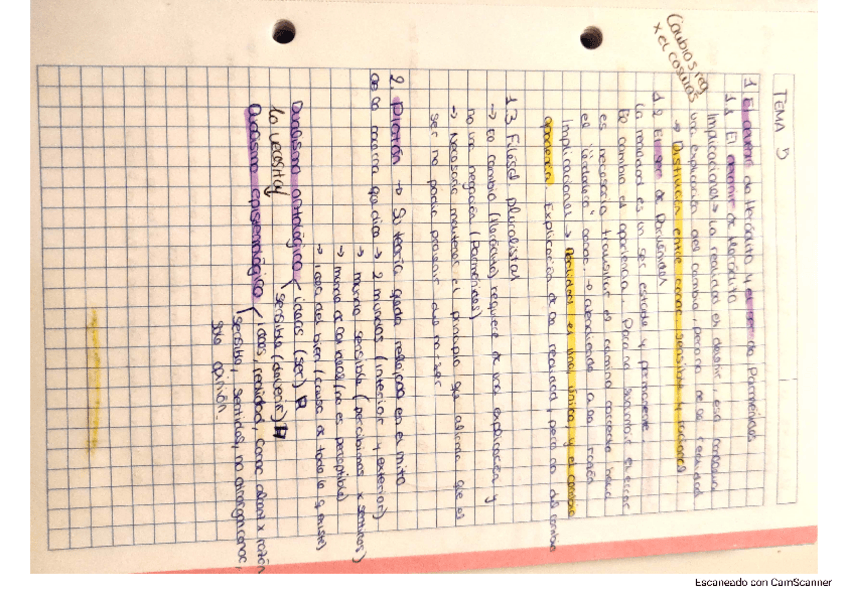 TEMA 5
1. El devenir de Heráclito y el ser de Parménides
1.1 El devenir de Heráclito
Implicaciones → La realidad es devenir, eso conlleva
una explicación del cambio, pero no de la realidad
→ Distinción entre conoc. sensible y racional
Cambios reg
x el cosmos
1.2 El ser de Parménides
La realidad es un ser estable y permanente.
El cambio es apariencia. Para no
es necesario transitar el camino correcto hacia
el "verdadero" conoc. → atendiendo a la razón
Implicaciones → Realidad es una, única, y el cambio
apariencia. Explicación de la realidad, pero no del cambio
1.3 Filósof. pluralistas
→ El cambio (Heráclito) requiere de una explicación y
no una negación (Parménides)
→ Necesario mantener el principio que afirma que el
ser no podía provenir del no ser
2. Platón → Su teoría queda reflejada en el mito
de la caverna que dice → 2 mundos (interior y exterior)
→ mundo sensible (percibimos x sentidos)
→ mundo de las ideas (no es perceptible)
→ idea del bien (causa de todo lo q existe)
Dualismo ontológico { ideas (ser)
sensible (devenir)
Dualismo epistemológico { ideas, realidad, conoc x razón
sensible, sentidos, no conoc,
solo opinión.
Escaneado con CamScanner